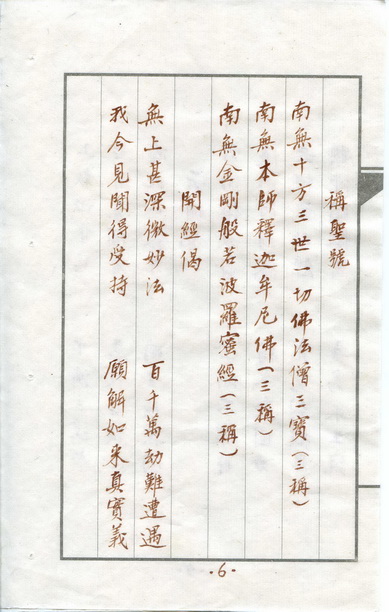 稱聖號
南無十方三世一切佛法僧三寶(三稱)
南無本師釋迦牟尼佛(三稱)
南無金剛般若波羅蜜經(三稱)
開經偈
無上甚深微妙法 百千萬劫難遭遇
我今見聞得受持 願解如来真實義
·6·